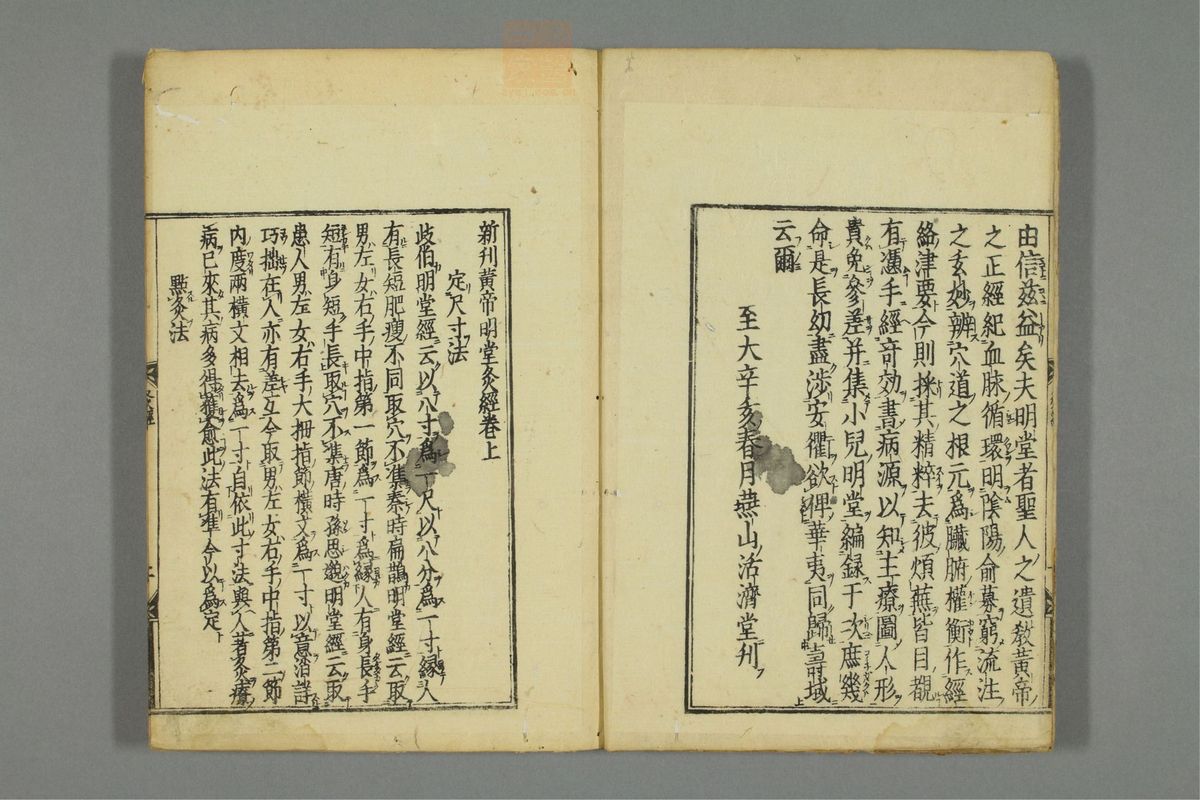 由信茲益矣夫明堂者聖人之遺教黄帝
之正經紀血脉循環明陰陽俞募窮流注
之玄妙辨穴道之根元爲臓腑權衡作經
絡津要今則採其精粹去彼煩蕪皆目覩
有憑手經竒効書病源以知主療圖人形
貴免參差并集小兒明堂編録于次庶幾
命是長幼盡渉安衢欲俾華夷同歸壽域
云爾
至大辛亥春月燕山活濟堂刊
新刊黄帝明堂灸經卷上
定尺寸法
歧伯明堂經云以八寸爲一尺以八分爲一寸縁人
有長短肥瘦不同取穴不准秦時扁鵲明堂經云取
男左女右手中指第一節爲一寸爲縁人有身長手
短有身短手長取穴不准唐時孫思邈明堂經云取
患人男左女右手大拇指節横文爲一寸以意消詳
巧拙在人亦有差互今取男左女右手中指第二節
内度兩横文相去爲一寸自依此寸法與人著灸療
病已來其病多得獲愈此法有准今以爲定
點灸法